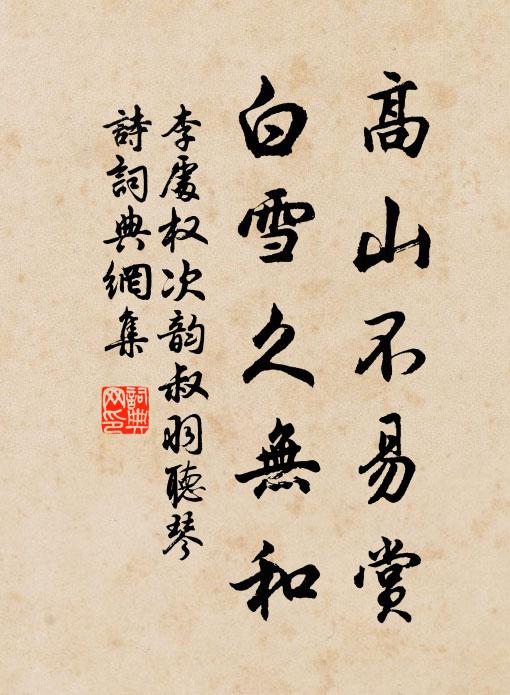 高山不易賞
白雪久無和
李處权次韵叔羽聽琴
詩詞典網集
詞典网印